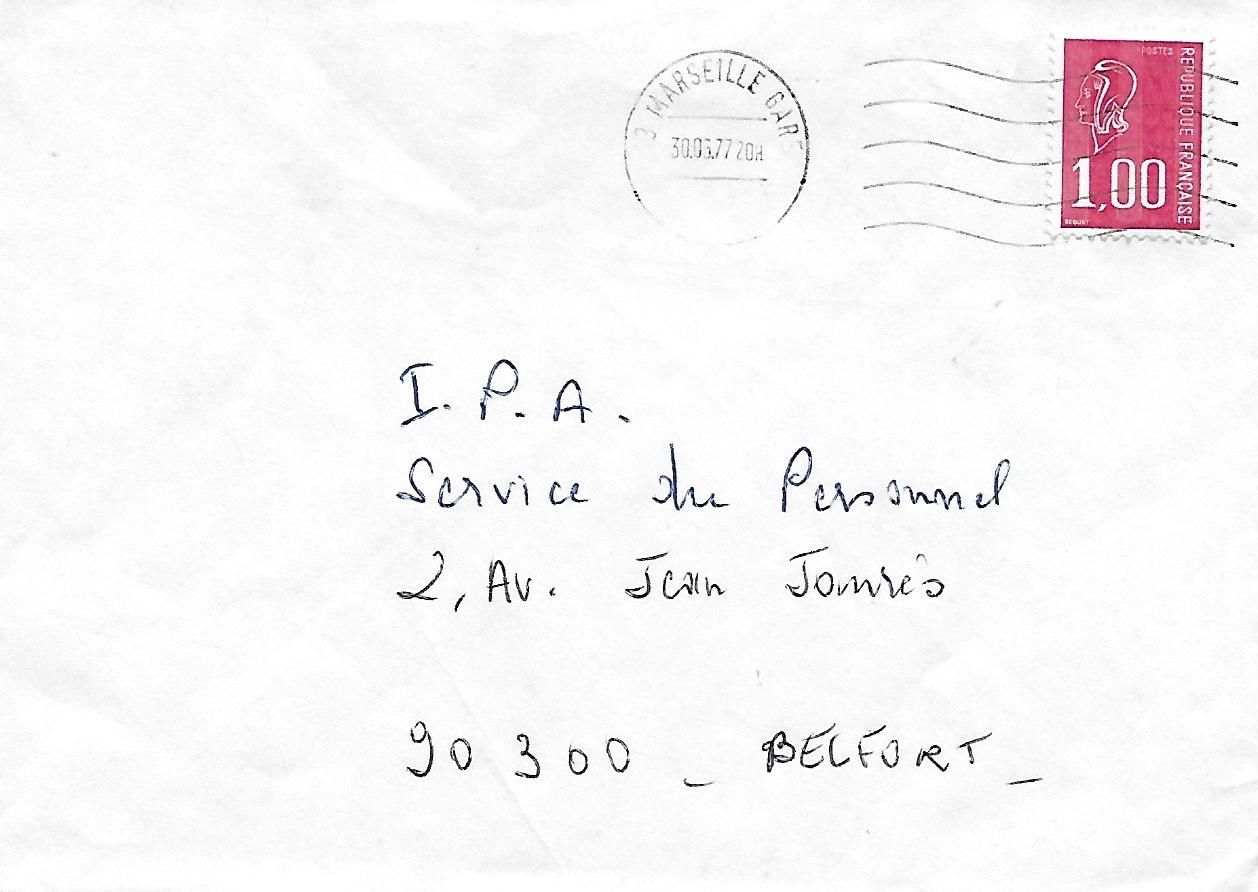 13 MARSEILLE GARE
20H
POSTES
REPUBLIQUE FRANÇAISE
1,00
BEQUET
I. P. A.
Service du Personnel
2, Av. Jean Jaurès
90 300 _ BELFORT _